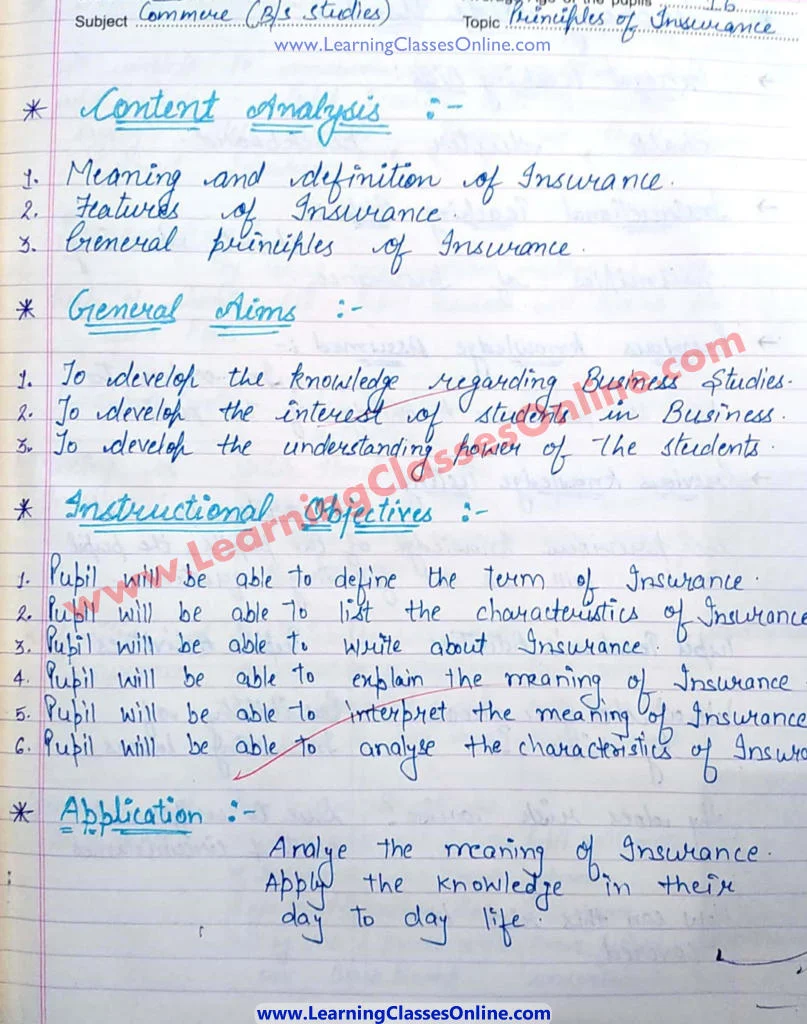 Average Age of the pupils 16
Subject Commere (B/s studies) Topic Principles of Insurance
www.LearningClassesOnline.com
* Content Analysis :-
1. Meaning and definition of Insurance.
2. Features of Insurance.
3. General principles of Insurance.
* General Aims :-
1. To develop the knowledge regarding Business Studies.
2. To develop the interest of students in Business.
3. To develop the understanding power of the students.
www.LearningClassesOnline.com
* Instructional Objectives :-
1. Pupil will be able to define the term of Insurance.
2. Pupil will be able to list the characteristics of Insurance
3. Pupil will be able to write about Insurance.
4. Pupil will be able to explain the meaning of Insurance
5. Pupil will be able to interpret the meaning of Insurance
6. Pupil will be able to analyse the characteristics of Insura
* Application :-
Analye the meaning of Insurance.
Apply the knowledge in their
day to day life.
www.LearningClassesOnline.com